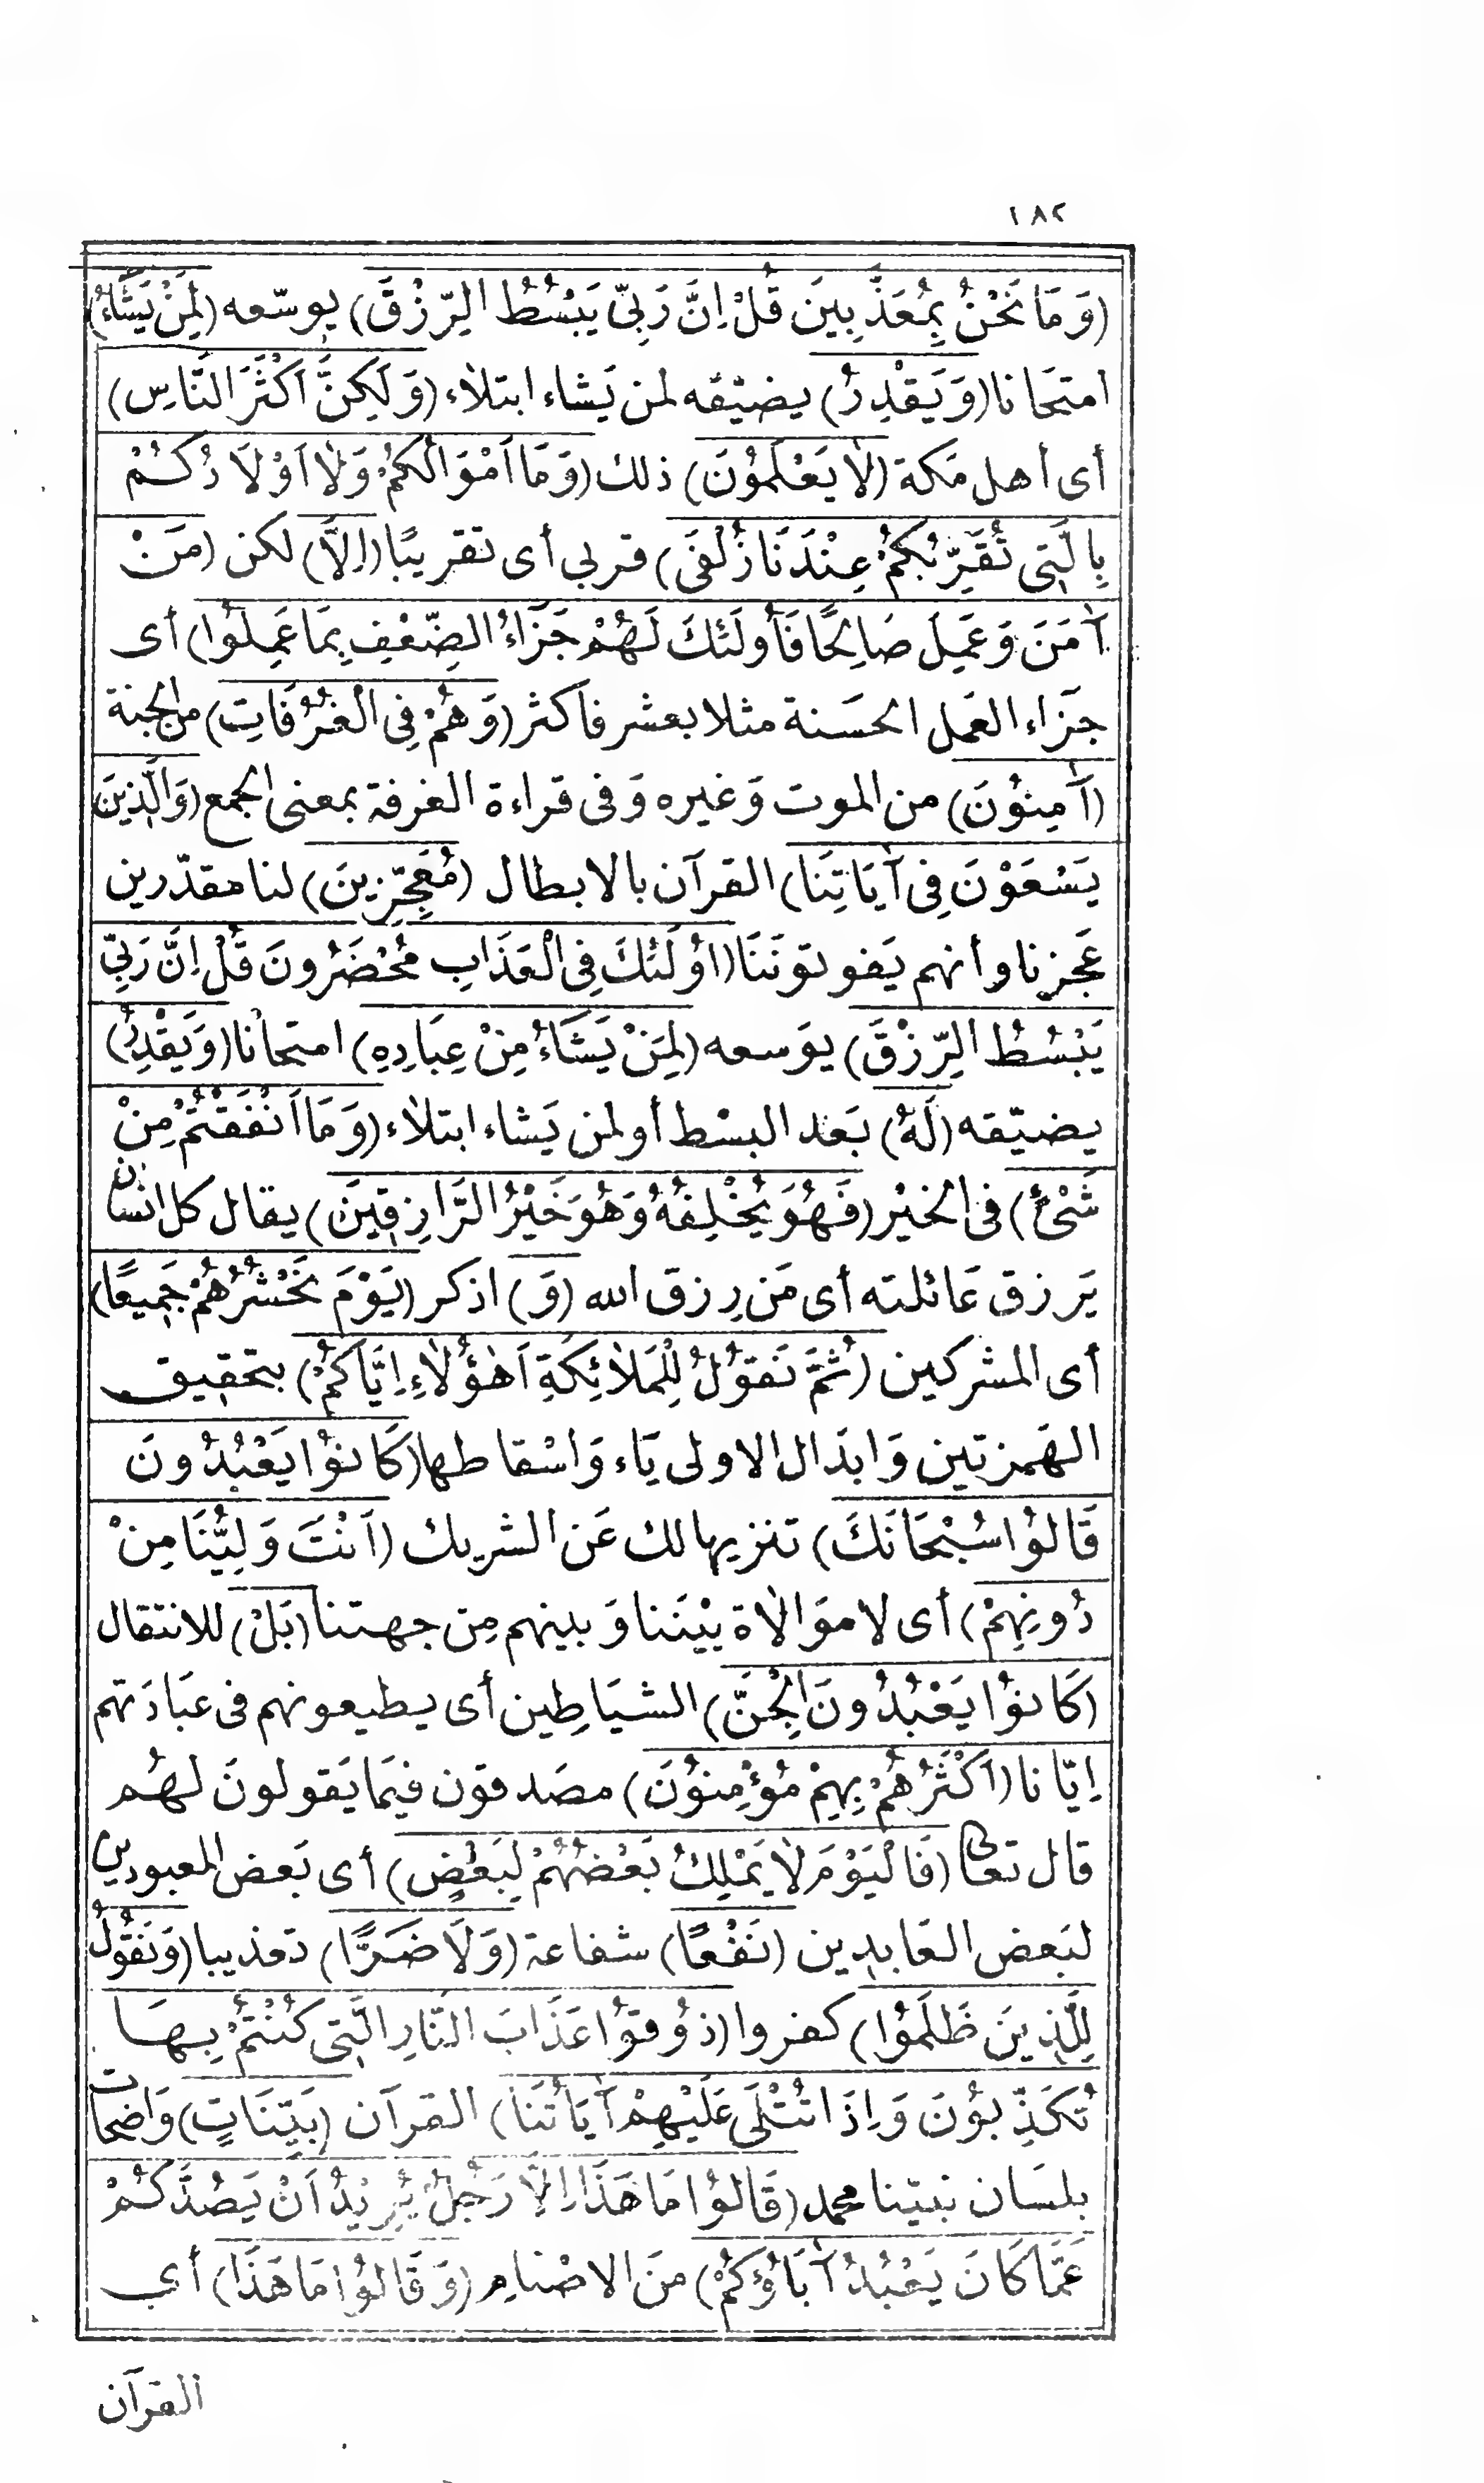 ١٨٢
(وَمَا نَحْنُ بِمُعَذَّبِينَ قُلْ اِنَّ رَبِّى يَبْسُطُ الرِّزْقَ) يوسّعه (لِمَنْ يَشَاءُ)
امتحَانا (وَيَقْدِرُ) يضيّقه لمن يَشاء ابتلاء (وَلَكِنَّ اَكْثَرَ النَّاسِ)
أى أهل مَكة (لاَ يَعْلَمُوْنَ) ذلك (وَمَا اَمْوَالُكُمْ وَلاَ اَوْلاَدُكُمْ
بِالَّتِى تُقَرِّبُكُمْ عِنْدَنَا زُلْفَى) قربى أى تقريبًا (اِلاَّ) لكن (مَنْ
آمَنَ وَعَمِلَ صَالِحًا فَأُولَئكَ لَهُمْ جَزَاءُ الضِّعْفِ بِمَا عَمِلُوْا) أى
جزَاء العَمل الحسَنة مثلا بعشر فاكثر (وَهُمْ فِى الْغُرُفَاتِ) من الجنة
(آمِنُوْنَ) من الموت وَغيره وَفى قراءة الغرفة بمعنى الجمع (وَالَّذِينَ
يَسْعَوْنَ فِى آيَاتِنَا) القرآن بالابطال (مُعَجِّزِينَ) لنا مقدّرين
عَجزنا وأنهم يَفوتونَنَا (اُولَئكَ فِى الْعَذَابِ مُحْضَرُونَ قُلْ اِنَّ رَبِّى
يَبْسُطُ الرِّزْقَ) يوَسعه (لِمَنْ يَشَاءُ مِنْ عِبَادِهِ) امتحانا (وَيَقْدِرُ)
يضيّقه (لَهُ) بَعد البسْط أو لمن يَشاء ابتلاء (وَمَا اَنْفَقْتُمْ مِنْ
شَىْءٍ) فى الخيْر (فَهُوَ يُخْلِفُهُ وَهُوَ خَيْرُ الرَّازِقِينَ) يقال كل انسَان
يَرزق عَائلته أى مَن رزق الله (وَ) اذكر (يَوْمَ نَحْشُرُهُمْ جَمِيعًا)
أى المشركين (ثُمَّ نَقُوْلُ لِلْمَلاَئِكَةِ اَهٰؤُلاَءِ اِيَّاكُمْ) بتحقيق
الهَمزتين وَابدَال الاولى يَاء وَاسْقاطها (كَانوُا يَعْبُدُونَ
قَالوُا سُبْحَانَكَ) تنزيها لك عَن الشريك (اَنْتَ وَلِيُّنَا مِنْ
دُونِهِمْ) أى لا موَالاة بيْنَنا وَبينهم مِن جهتنا (بَلْ) للانتقال
(كَانوُا يَعْبُدُونَ الْجِنَّ) الشيَاطِين أى يطيعونهم فى عبَادَتهم
اِيّانا (اَكْثَرُهُمْ بِهِمْ مُوْءْمِنوُنَ) مصَدقون فيمَا يَقولونَ لهُم
قال تعالى (فَالْيَوْمَ لاَ يَمْلِكُ بَعْضُهُمْ لِبَعْضٍ) أى بَعض المعبودين
لبَعض العَابدِين (نَفْعًا) شفاعة (وَلاَ ضَرًّا) تعذيبا (وَنَقُوْلُ
لِلَّذِينَ ظَلَمُوْا) كفروا (ذُوقوُا عَذَابَ النَّارِ الَّتِى كُنْتُمْ بِهَا
تُكَذِّبوُنَ وَاِذَا تُتْلَى عَلَيْهِمْ آيَاتُنَا) القرآن (بَيِّنَاتٍ) وَاضحات
بلسَان نبيّنا محمد (قَالوُا مَا هَذَا اِلاَّ رَجُلٌ يُرِيْدُ اَنْ يَصُدَّكُمْ
عَمَّا كَانَ يَعْبُدُ آبَاؤُكُمْ) مِنَ الاصْنامِ (وَقَالوُا مَا هَذَا) أي
القرآن